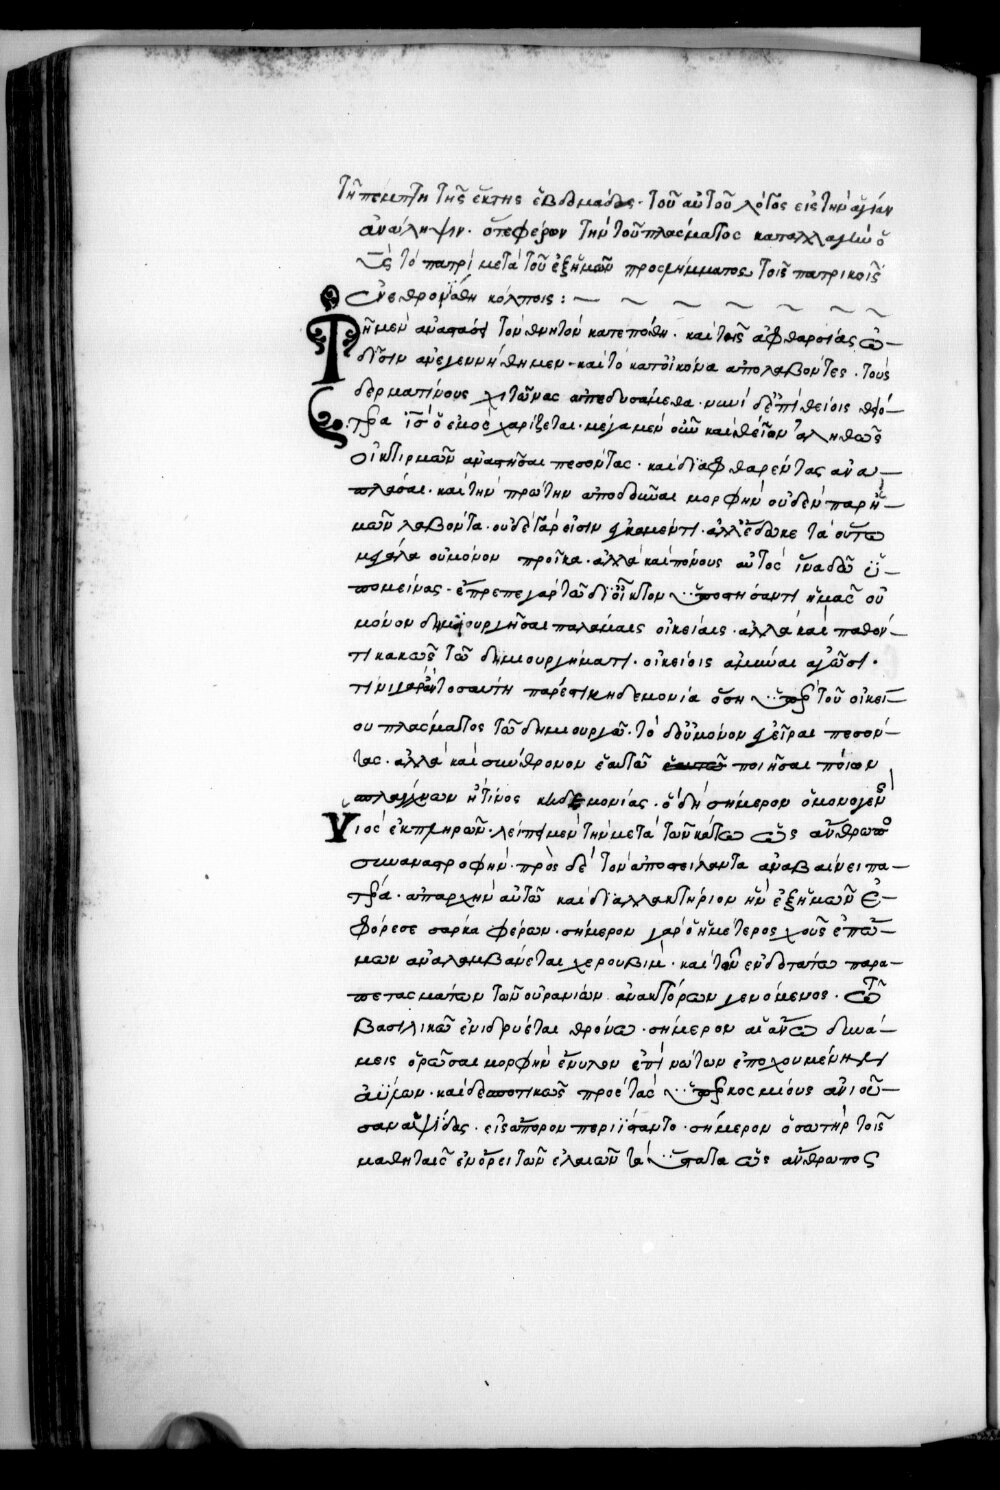 Τῆ πέμπτη τῆς ἕκτης ἑβδομάδος. τοῦ αὐτοῦ λόγος εἰς τὴν ἁγίαν
ἀνάληψιν. ὅτε φέρων τὴν τοῦ πλάσματος καταλλαγὴν ὁ
τῷ πατρὶ μετὰ τοῦ ἐξ ἡμῶν προσλήμματος τοῖς πατρικοῖς
ἐνεθρονίσθη κόλποις:
Τῆ μὲν ἀναστάσει τὸν θνητὸν κατεπόθη. καὶ τοῖς ἀφθαρσίας ὠ-
δῖσιν ἀνεγεννήθημεν. καὶ τὸ κατ' εἰκόνα ἀπολαβόντες. τοὺς
δερματίνους χιτῶνας ἀπεδυσάμεθα. νυνὶ δὲ
ὁ ἐμὸς χαρίζεται. μέγα μὲν οὖν καὶ θείων ἀληθῶς
οἰκτιρμῶν ἀναστῆσαι πεσόντας. καὶ διαφθαρέντας ἀνα-
πλάσαι. καὶ τὴν πρώτην ἀποδοῦναι μορφὴν οὐδὲν παρ' ἡ-
μῶν λαβόντα. οὐδὲ γάρ εἰσιν ἀλλ' ἔδωκε τὰ οὕτω
μεγάλα οὐ μόνον προῖκα. ἀλλὰ καὶ πόνους αὐτὸς ἵνα δῶ ὑ-
πομείνας. ἔπρεπε γὰρ τῶ δι' οἶκτον ὑποστήσαντι ἡμᾶς οὐ
μόνον δημιουργῆσαι παλάμαις οἰκείαις. ἀλλὰ καὶ παθόν-
τι κακῶς τῶ δημιουργήματι. οἰκείοις ἀμῦναι ἀγῶσι.
τίνι γὰρ ἂν τοσαύτη παρέστι κηδεμονία ὅση ὑπὲρ τοῦ οἰκεί-
ου πλάσματος τῶ δημιουργῶ. τὸ δὲ μὴ μόνον ἐγεῖραι πεσόν-
τας. ἀλλὰ καὶ σύνθρονον ἑαυτῶ ἑαυτῶ ποιῆσαι ποίων
σπλάγχνων ἢ τίνος κηδεμονίας. ὃ δὴ σήμερον ὁ μονογενὴς
Υἱὸς ἐκπληρῶν. λείπει μὲν τὴν μετὰ τῶν κάτω ὡς ἄνθρωπος
συναναστροφήν. πρὸς δὲ τὸν ἀποστείλαντα ἀναβαίνει πα-
τέρα. ἀπαρχὴν αὐτῶ καὶ διαλλακτήριον ἣν ἐξ ἡμῶν ἐ-
φόρεσε σάρκα φέρων. σήμερον γὰρ ὁ ἡμέτερος χοῦς ἐπ' ὤ-
μων ἀναλαμβάνεται χερουβίμ. καὶ τῶν ἐνδοτάτω παρα-
πετασμάτων τῶν οὐρανίων ἀνακτόρων γενόμενος. τῶ
βασιλικῶ ἐνιδρύεται θρόνω. σήμερον αἱ ἄνω δυνά-
μεις ὁρῶσαι μορφὴν ἔνυλον ἐπὶ νώτων ἐποχουμένην
ἀΰλων. καὶ δεσποτικῶς πρὸς τὰς ὑπερκοσμίους ἀνιοῦ-
σαν ἀψίδας. εἰς ἄπορον περιίσταντο. σήμερον ὁ σωτὴρ τοῖς
μαθηταῖς ἐν ὄρει τῶν ἐλαιῶν τὰ ὕστατα ὡς ἄνθρωπος